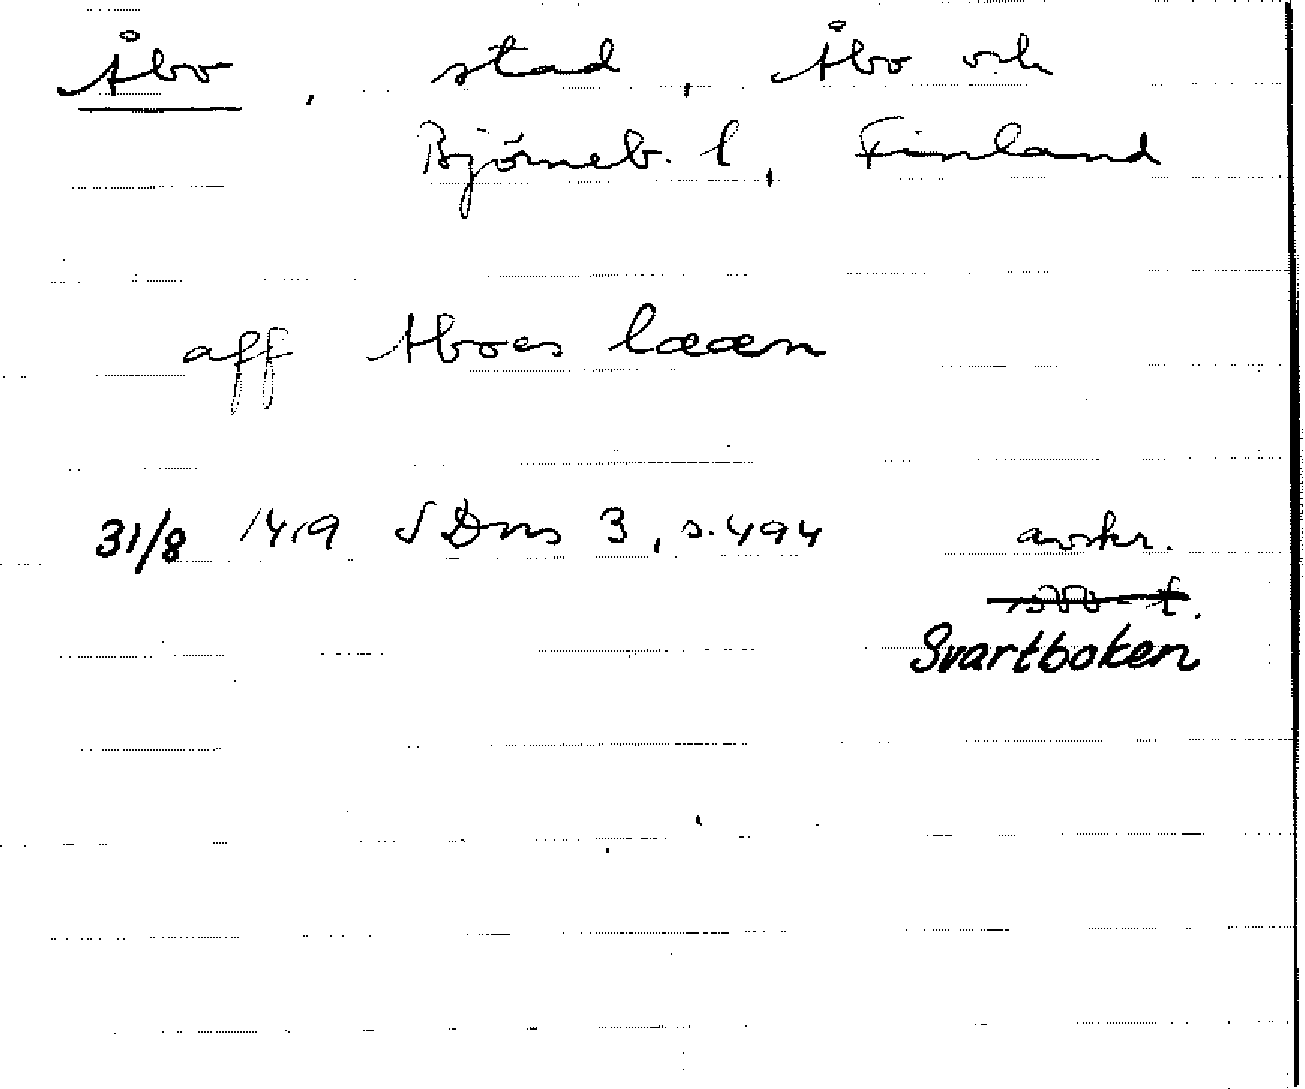 Åbo, stad, Åbo och
Björneb. l, Finland
aff Aboes lææn
31/8 1419 SDns 3, s. 494 avskr.
Svartboken